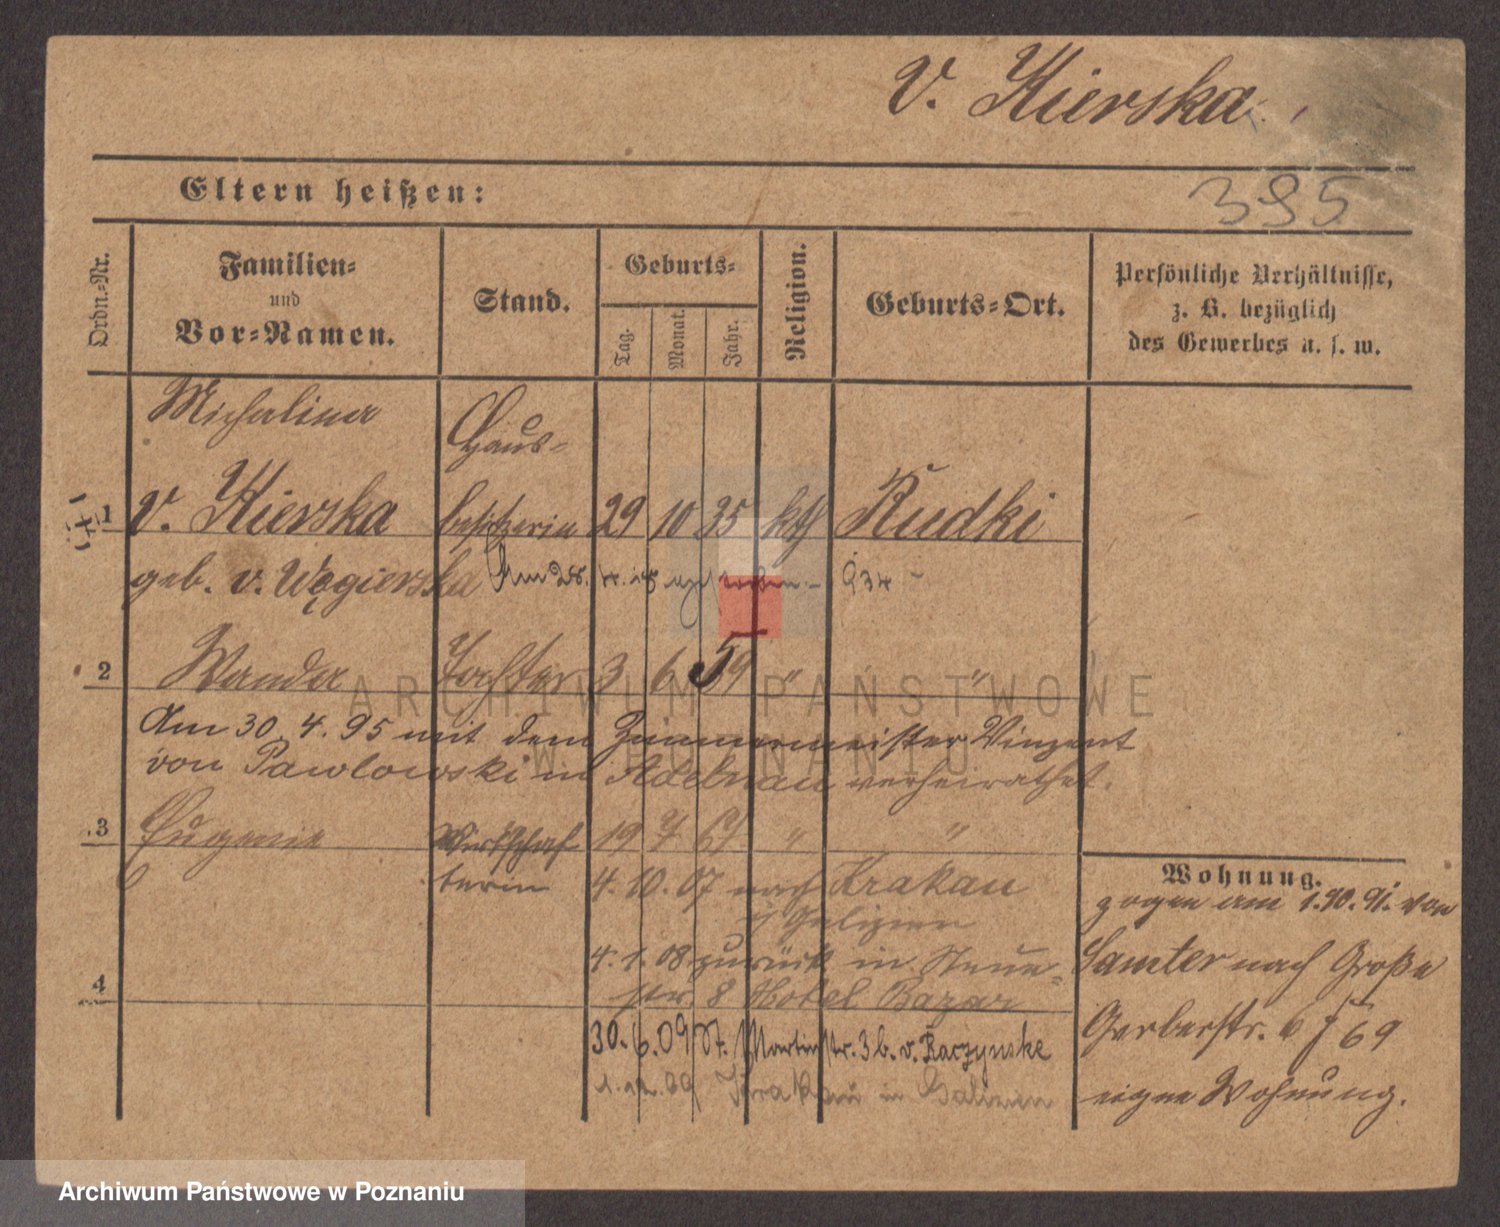 v. Kierska
Eltern heißen:
395
Ordn.-Nr.
Familien-
und
Vor-Namen.
Stand.
Geburts-
Tag.
Monat.
Jahr.
Religion.
Geburts-Ort.
Persönliche Verhältnisse,
z. B. bezüglich
des Gewerbes u. s. w.
Michalina
Haus-
1 v. Kierska besitzerin 29 10 35 kth Rudki
geb. v. Węgierska Am 28. gestorben. 934
2 Wanda Tochter 3 6 59 " "
Am 30. 4. 95 mit dem Zimmermeister Vinzent
von Pawlowski in Adelnau verheirathet.
3 Eugenie Wirthschaf 19 7 67 " "
terin 4. 10. 07 nach Krakau
Galizien
4. 1. 08 zurück in Neue-
4 str. 8 Hotel Bazar
30. 6. 09 Martinstr. 3 b. v. Raczynske
1. 12. 09 Krakau in Galizien
Wohnung.
zogen am 1. 10. 91. von
Samter nach Große
Gerberstr. 6 I 69
eigne Wohnung.
ARCHIWUM PAŃSTWOWE
W POZNANIU
Archiwum Państwowe w Poznaniu